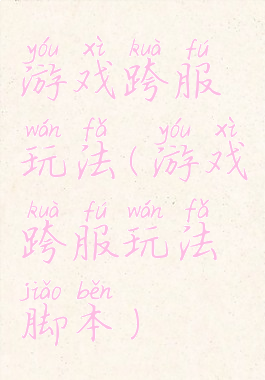 yóu xì kuà fú
游戏跨服
wán fǎ yóu xì
玩法(游戏
kuà fú wán fǎ
跨服玩法
jiǎo běn
脚本)